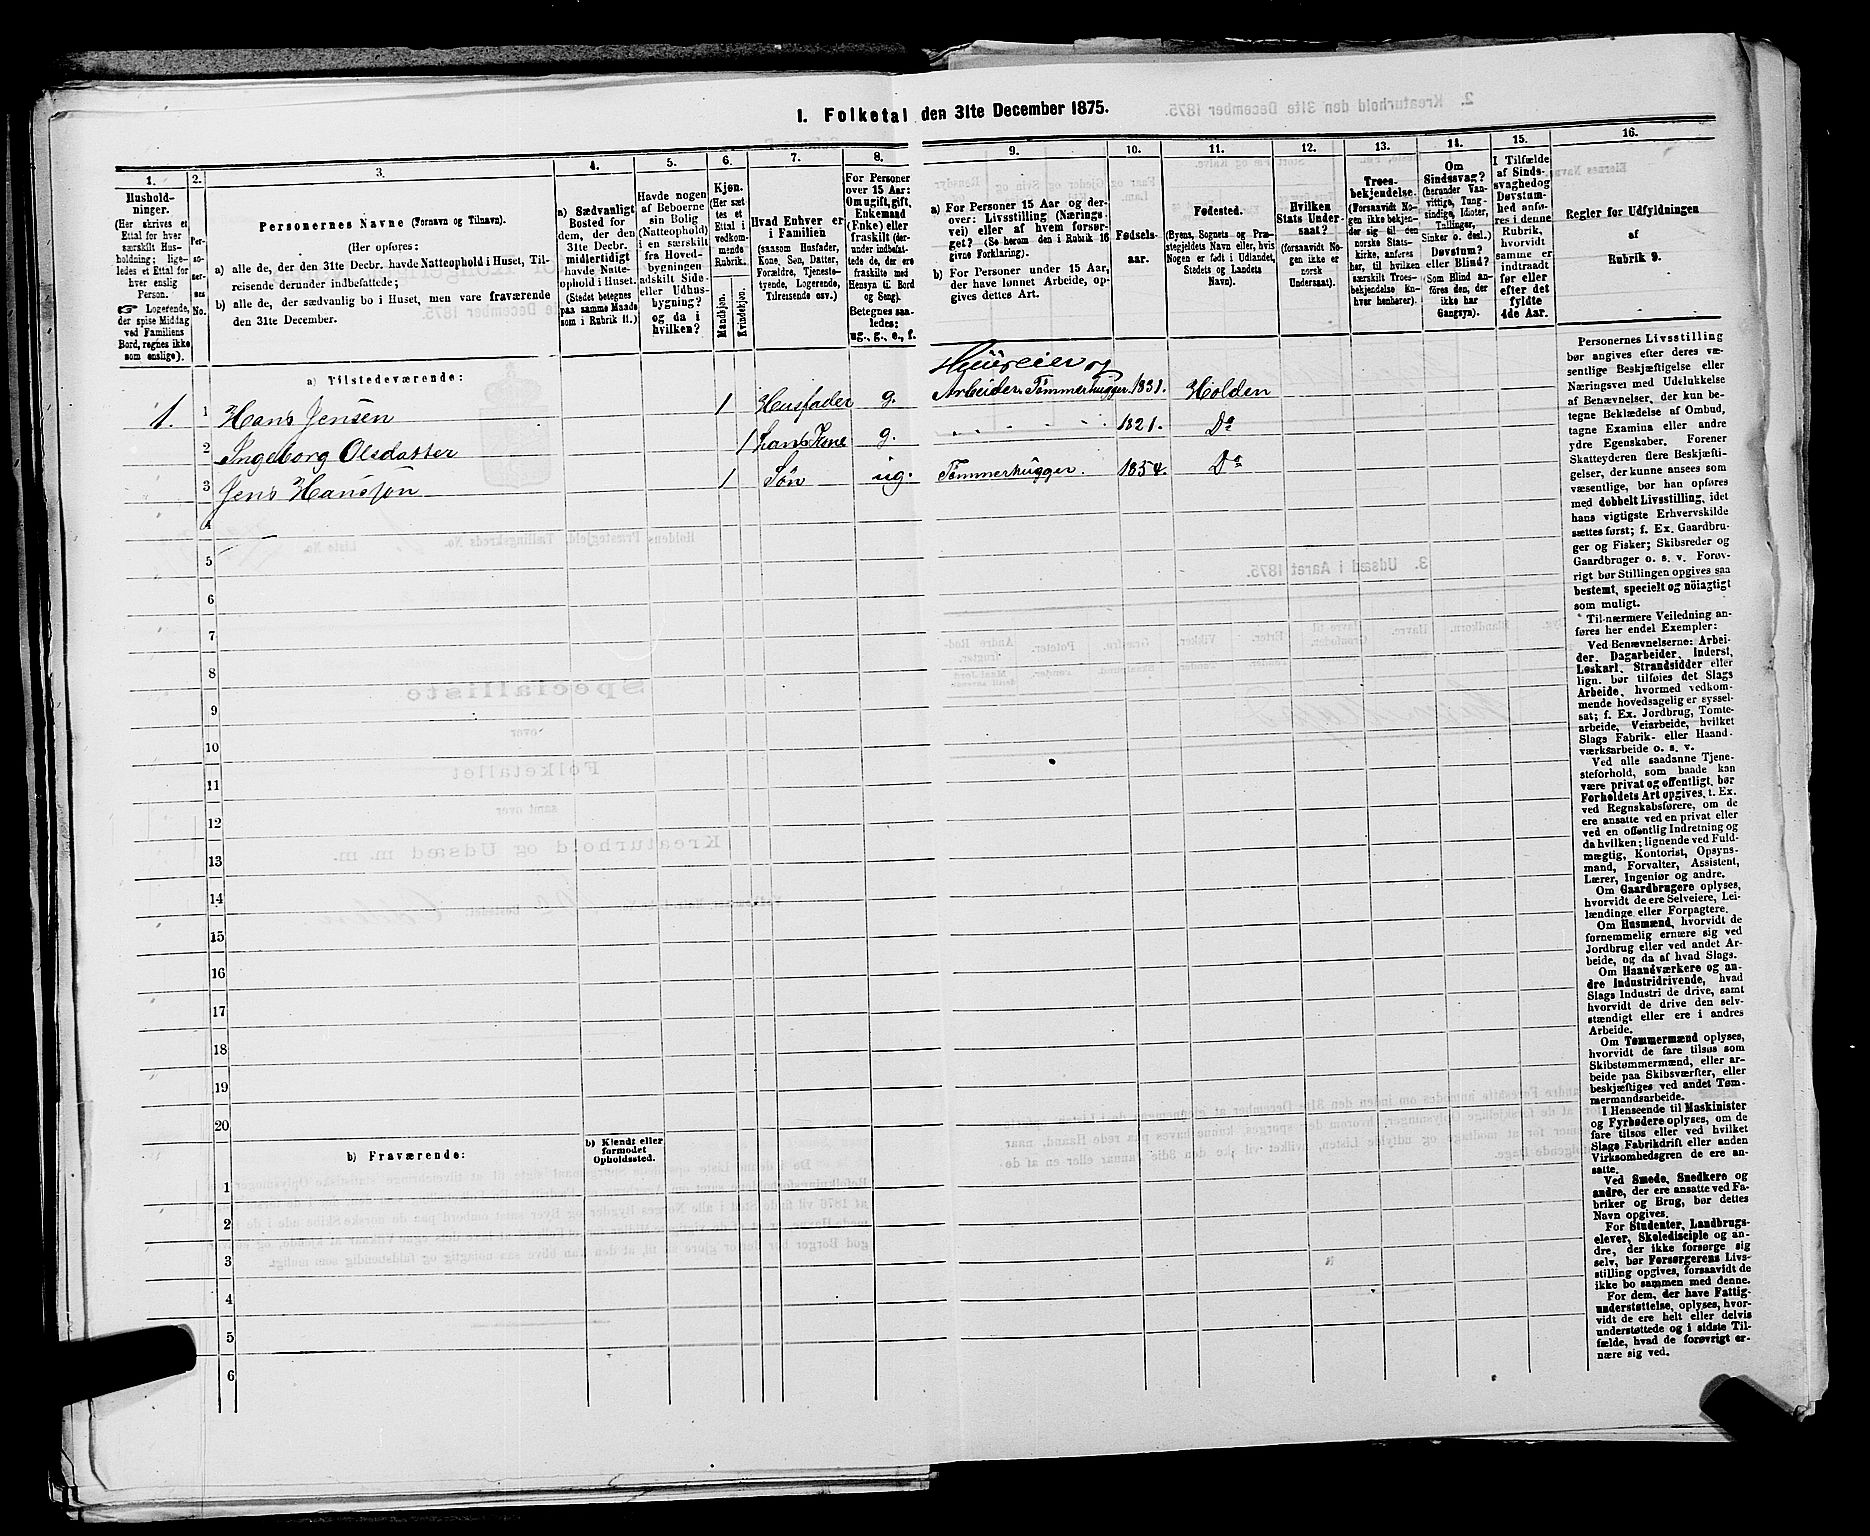 1. Folketal den 31te December 1875.
1.
Hushold-
ninger.
(Her skrives et
Ettal for hver
særskilt Hus-
holdning; lige-
ledes et Ettal for
hver enslig
Person.
Logerende,
der spise Middag
ved Familiens
Bord, regnes ikke
som enslige).
2.
Per-
so-
ner-
nes
No.
3.
Personernes Navne (Fornavn og Tilnavn).
(Her opføres:
a) alle de, der den 31te Decbr. havde Natteophold i Huset, Til-
reisende derunder indbefattede;
b) alle de, der sædvanlig bo i Huset, men vare fraværende
den 31te December.
4.
a) Sædvanligt
Bosted for
dem, der den
31te Decbr.
midlertidigt
havde Natte-
ophold i Huset.
(Stedet betegnes
paa samme Maade
som i Rubrik 11.)
5.
Havde nogen
af Beboerne
sin Bolig
(Natteophold)
i en særskilt
fra Hoved-
bygningen
adskilt Side-
eller Udhus-
bygning?
og da i
hvilken?
6.
Kjøn.
(Her sæt
tes et
Ettal i
vedkom-
mende
Rubrik.)
Mandkjøn.
Kvindekjøn.
7.
Hvad Enhver er
i Familien
(saasom Husfader,
Kone, Søn, Datter,
Forældre, Tjeneste-
tyende, Logerende,
Tilreisende osv.)
8.
For Personer
over 15 Aar:
Om ugift, gift,
Enkemand
(Enke) eller
fraskilt (der-
under indbefat-
tede de, der ere
fraskilte med
Hensyn til Bord
og Seng).
Betegnes saa-
ledes:
ug., g., e., f.
9.
a) For Personer 15 Aar og der-
over: Livsstilling (Nærings-
vei) eller af hvem forsør-
get? (Se herom den i Rubrik 16
givne Forklaring).
b) For Personer under 15 Aar,
der have lønnet Arbeide, op-
gives dettes Art.
10.
Fødsels-
aar.
11.
Fødested.
(Byens, Sognets og Præ-
stegjeldets Navn eller, hvis
Nogen er født i Udlandet,
Stedets og Landets
Navn).
12.
Hvilken
Stats Under-
saat?
(forsaavidt No-
gen ikke er
norsk
Undersaat).
13.
Troes-
bekjendelse.
(Forsaavidt No-
gen ikke bekjen-
der sig til den
norske Stats-
kirke, anføres
her, til hvilken
særskilt Troes-
bekjendelse En-
hver henhører).
14.
Om
Sindssvag?
(herunder Van-
vittige, Tung-
sindige, Idioter,
Tullinger,
Sinker o. desl.)
Døvstum?
eller Blind?
(Som Blind an-
føres den, der
ikke har
Gangsyn).
15.
I Tilfælde
af Sinds-
svaghed og
Døvstum-
hed anfø-
res i denne
Rubrik,
hvorvidt
samme er
indtraadt
før eller
efter det
fyldte
4de Aar.
16.
Regler for Udfyldningen
af
Rubrik 9.
a) Tilstedeværende:
1. 1 Hans Jensen 1 Husfader g. Arbeider Tømmerhugger. 1831. Holden
2 Ingeborg Olsdatter 1 hans Kone g. 1821. Do
3 Jens Hanssøn 1 Søn ug. Tømmerhugger. 1854. Do
4
5
6
7
8
9
10
11
12
13
14
15
16
17
18
19
20
b) Fraværende:
b) Kjendt eller
formodet
Opholdssted.
1
2
3
4
5
6
Personernes Livsstilling
bør angives efter deres væ-
sentlige Beskjæftigelse eller
Næringsvei med Udelukkelse
af Benævnelser, der kun be-
tegne Beklædelse af Ombud,
tagne Examina eller andre
ydre Egenskaber. Forener
Skatteyderen flere Beskjæfti-
gelser, der kunne ansees som
væsentlige, bør han opføres
med dobbelt Livsstilling, idet
hans vigtigste Erhvervskilde
sættes først; f. Ex. Gaardbru-
ger og Fisker; Skibsreder og
Gaardbruger o. s. v. Forøv-
rigt bør Stillingen opgives saa
bestemt, specielt og nöiagtigt
som muligt.
Til nærmere Veiledning an-
føres her endel Exempler:
Ved Benævnelserne: Arbei-
der, Dagarbeider, Inderst,
Løskarl, Strandsidder eller
lign. bør tilføies det Slags
Arbeide, hvormed vedkom-
mende hovedsagelig er syssel-
sat; f. Ex. Jordbrug, Tomte-
arbeide, Veiarbeide, hvilket
Slags Fabrik- eller Haand-
værksarbeide o. s. v.
Ved alle saadanne Tjene-
steforhold, som baade kan
være privat og offentligt, bør
Forholdets Art opgives, t. Ex.
ved Regnskabsførere, om de
ere ansatte ved en privat eller
ved en offentlig Indretning og
da hvilken; lignende ved Fuld-
mægtig, Kontorist, Opsyns-
mand, Forvalter, Assistent,
Lærer, Ingeniør og andre.
Om Gaardbrugere oplyses,
hvorvidt de ere Selveiere, Lei-
lændinge eller Forpagtere.
Om Husmænd, hvorvidt de
fornemmelig ernære sig ved
Jordbrug eller ved andet Ar-
beide, og da af hvad Slags.
Om Haandværkere og an-
dre Industridrivende, hvad
Slags Industri de drive, samt
hvorvidt de drive den selv-
stændigt eller ere i andres
Arbeide.
Om Tømmermænd oplyses,
hvorvidt de fare tilsøs som
Skibstømmermænd, eller ar-
beide paa Skibsværfter, eller
beskjæftiges ved andet Tøm-
mermandsarbeide.
I Henseende til Maskinister
og Fyrbødere oplyses, om de
fare tilsøs eller ved hvilket
Slags Fabrikdrift eller anden
Virksomhedsgren de ere an-
satte.
Ved Smede, Snedkere og
andre, der ere ansatte ved Fa-
briker og Brug, bør dettes
Navn opgives.
For Studenter, Landbrugs-
elever, Skoledisciple og an-
dre, der ikke forsørge sig
selv, bør Forsørgerens Livs-
stilling opgives, forsaavidt de
ikke bo sammen med denne.
For dem, der have Fattig-
understøttelse, oplyses, hvor-
vidt de ere helt eller delvis
understøttede og i sidste Til-
fælde, hvad de forøvrigt er-
nære sig ved.